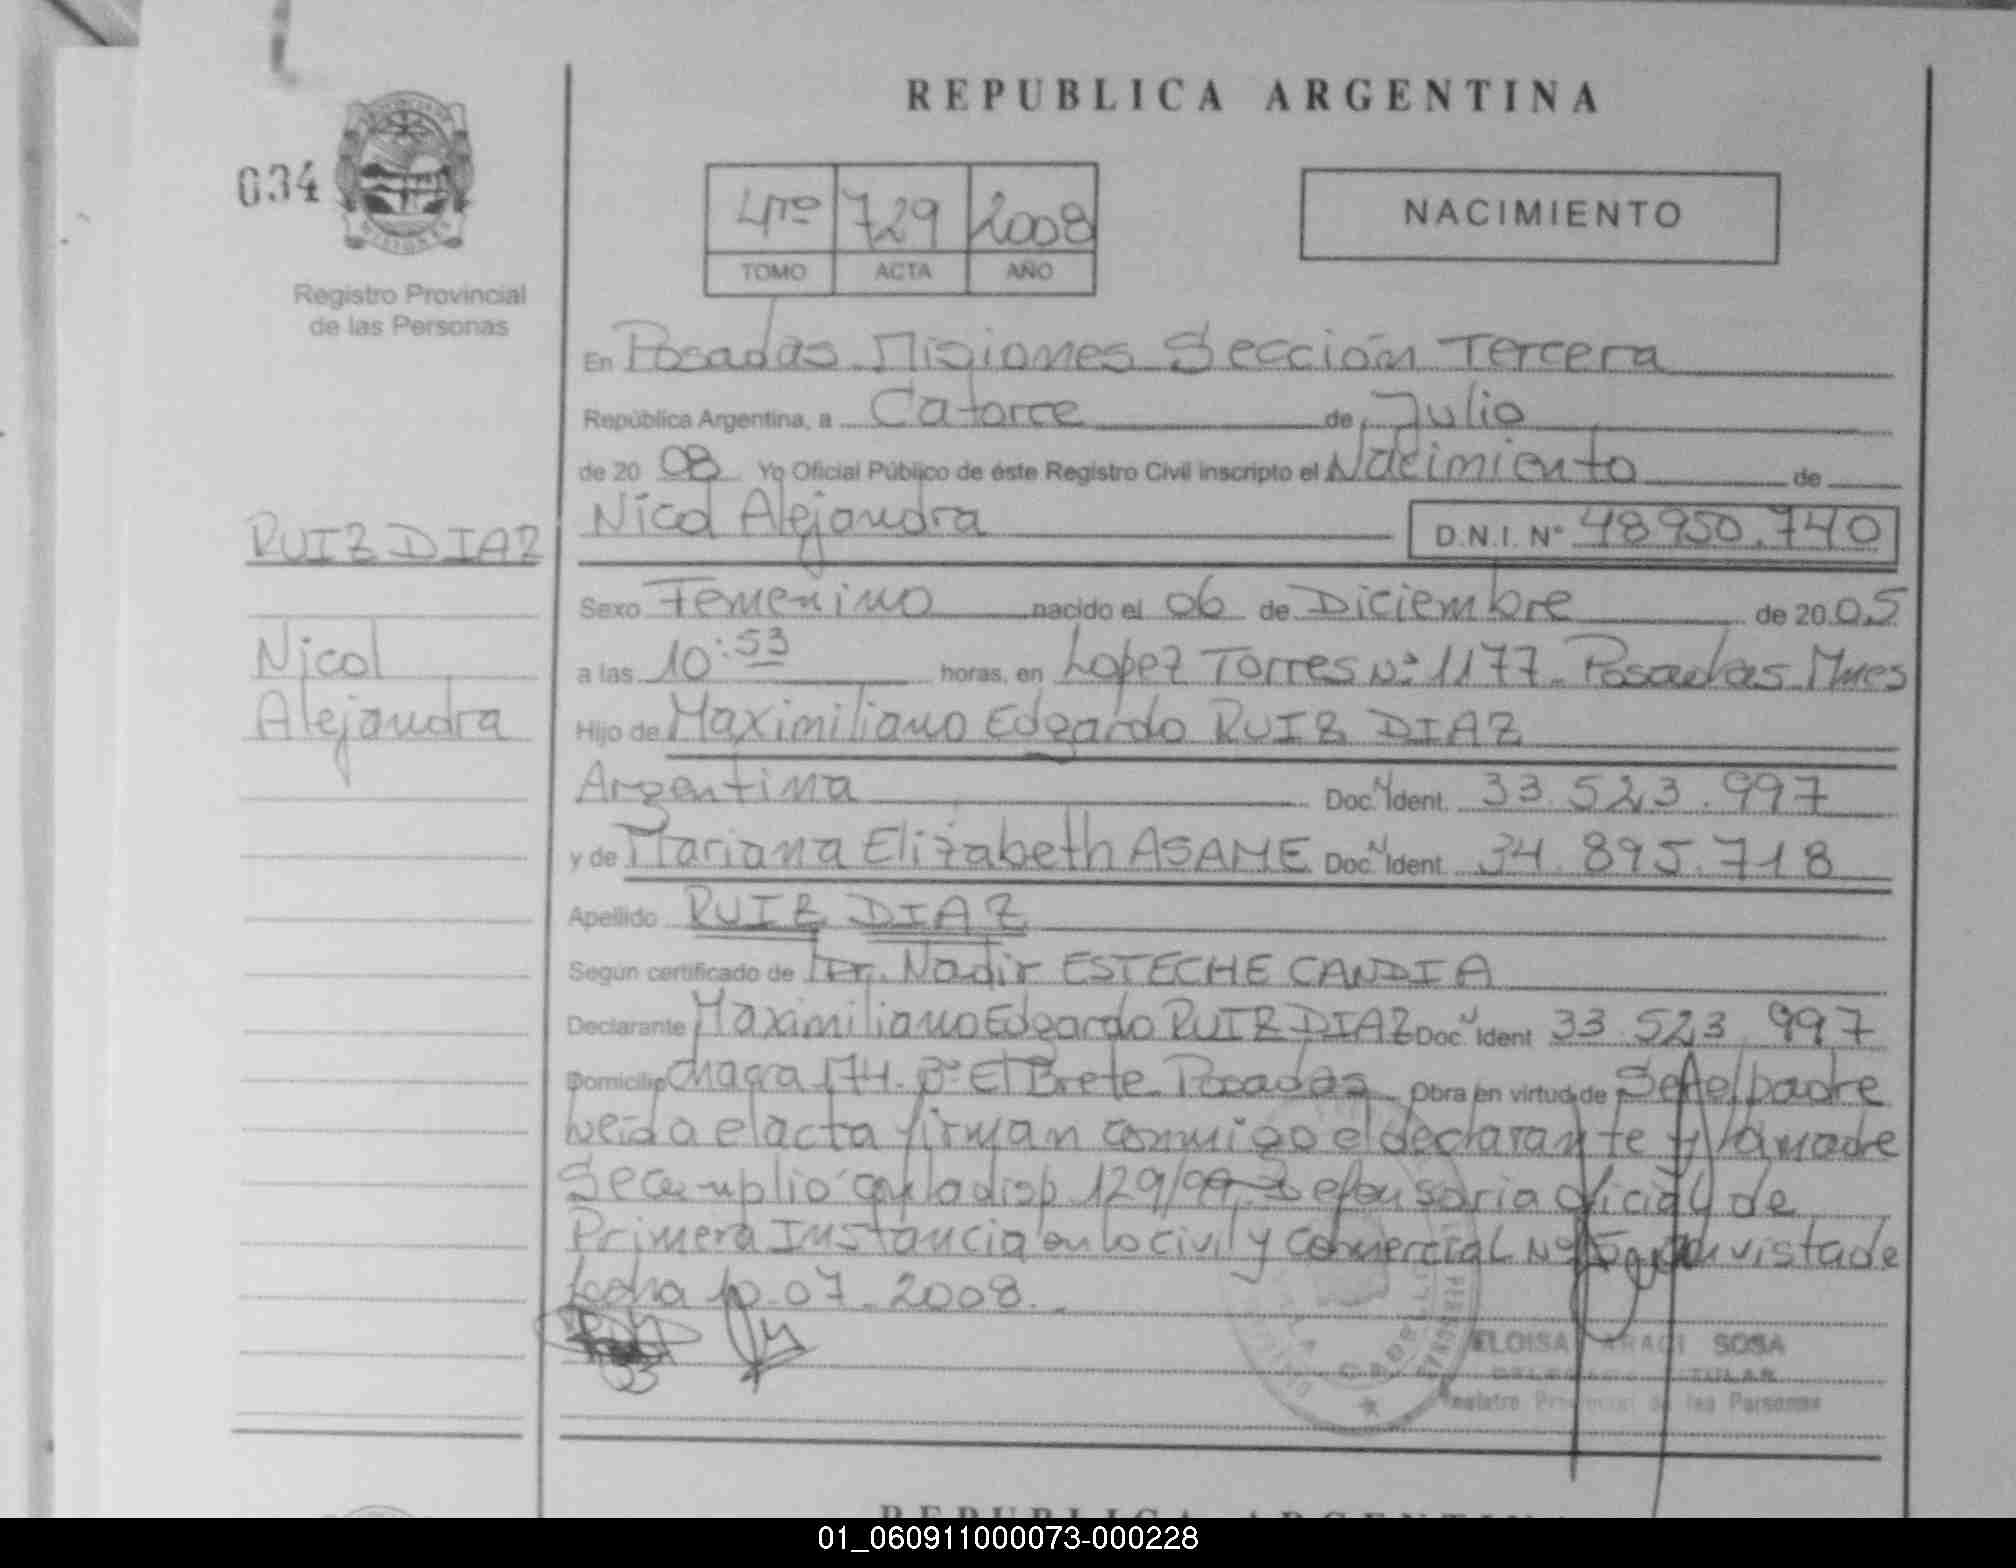 REPUBLICA ARGENTINA
034
4to 729 2008
TOMO ACTA AÑO
NACIMIENTO
MISIONES
Registro Provincial
de las Personas
En Posadas Misiones Sección Tercera
República Argentina, a Catorce de Julio
de 20 08 Yo Oficial Público de éste Registro Civil inscripto el Nacimiento de
Nicol Alejandra D.N.I. Nº 48950.740
RUIZ DIAZ
Sexo Femenino nacido el 06 de Diciembre de 20 05
Nicol
a las 10:53 horas, en Lopez Torres Nº 1177- Posadas Mnes
Alejandra
Hijo de Maximiliano Edgardo RUIZ DIAZ
Argentina Doc. Ident. 33.523.997
y de Mariana Elizabeth ASAME Doc. Ident. 34.895.718
Apellido RUIZ DIAZ
Según certificado de Dr. Nadir ESTECHE CANDIA
Declarante Maximiliano Edgardo RUIZ DIAZ Doc. Ident 33.523.997
Domicilio chacra 174. Bº El Brete Posadas Obra en virtud de Ser el padre
Leida el acta firman conmigo el declarante y la madre
Se cumplio con la disp. 129/99 Defensoria oficial de
Primera Instancia en lo civil y Comercial Nº 5 vista de
fecha 10-07-2008.
ELOISA ARACI SOSA
TITULAR
Registro Provincial de las Personas
REPUBLICA ARGENTINA
01_060911000073-000228